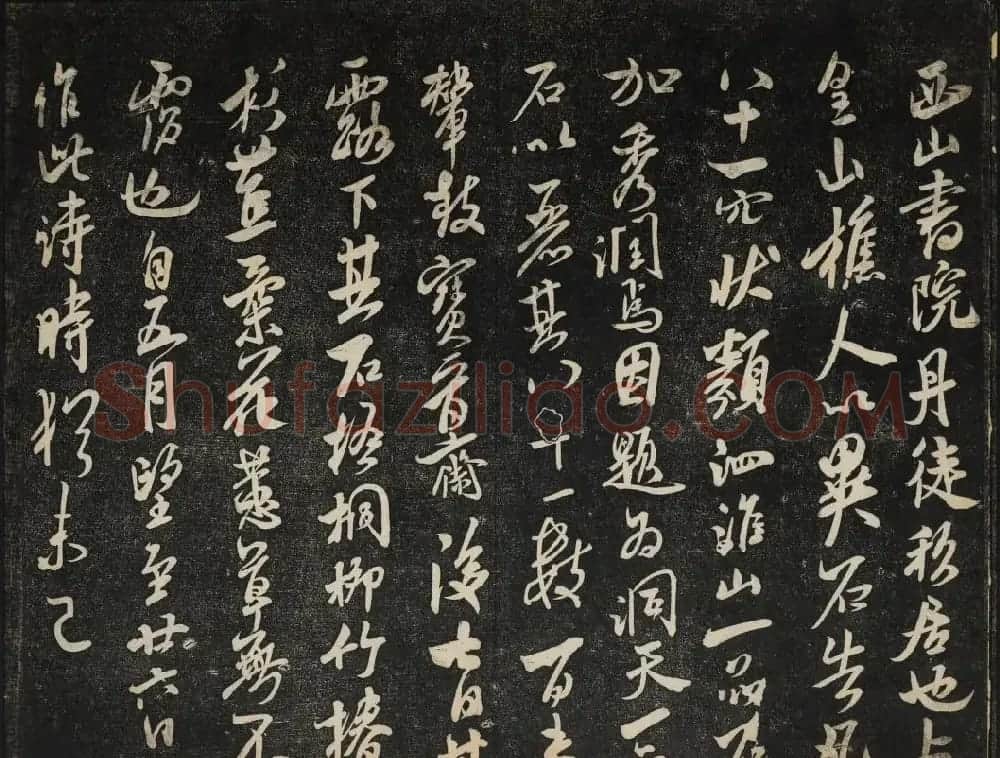 西山書院丹徒私居也上
皇山樵人以異石告凡
八十一穴狀類泗淮山一品石
加秀潤焉因題為洞天一品
石以麗其八十一數百夫
輦致寶晉齋後七日甘
露下其石梧桐柳竹椿
杉草無不
霑也自五月望至廿六日
作此詩時猶未已
Shufaziliao.COM